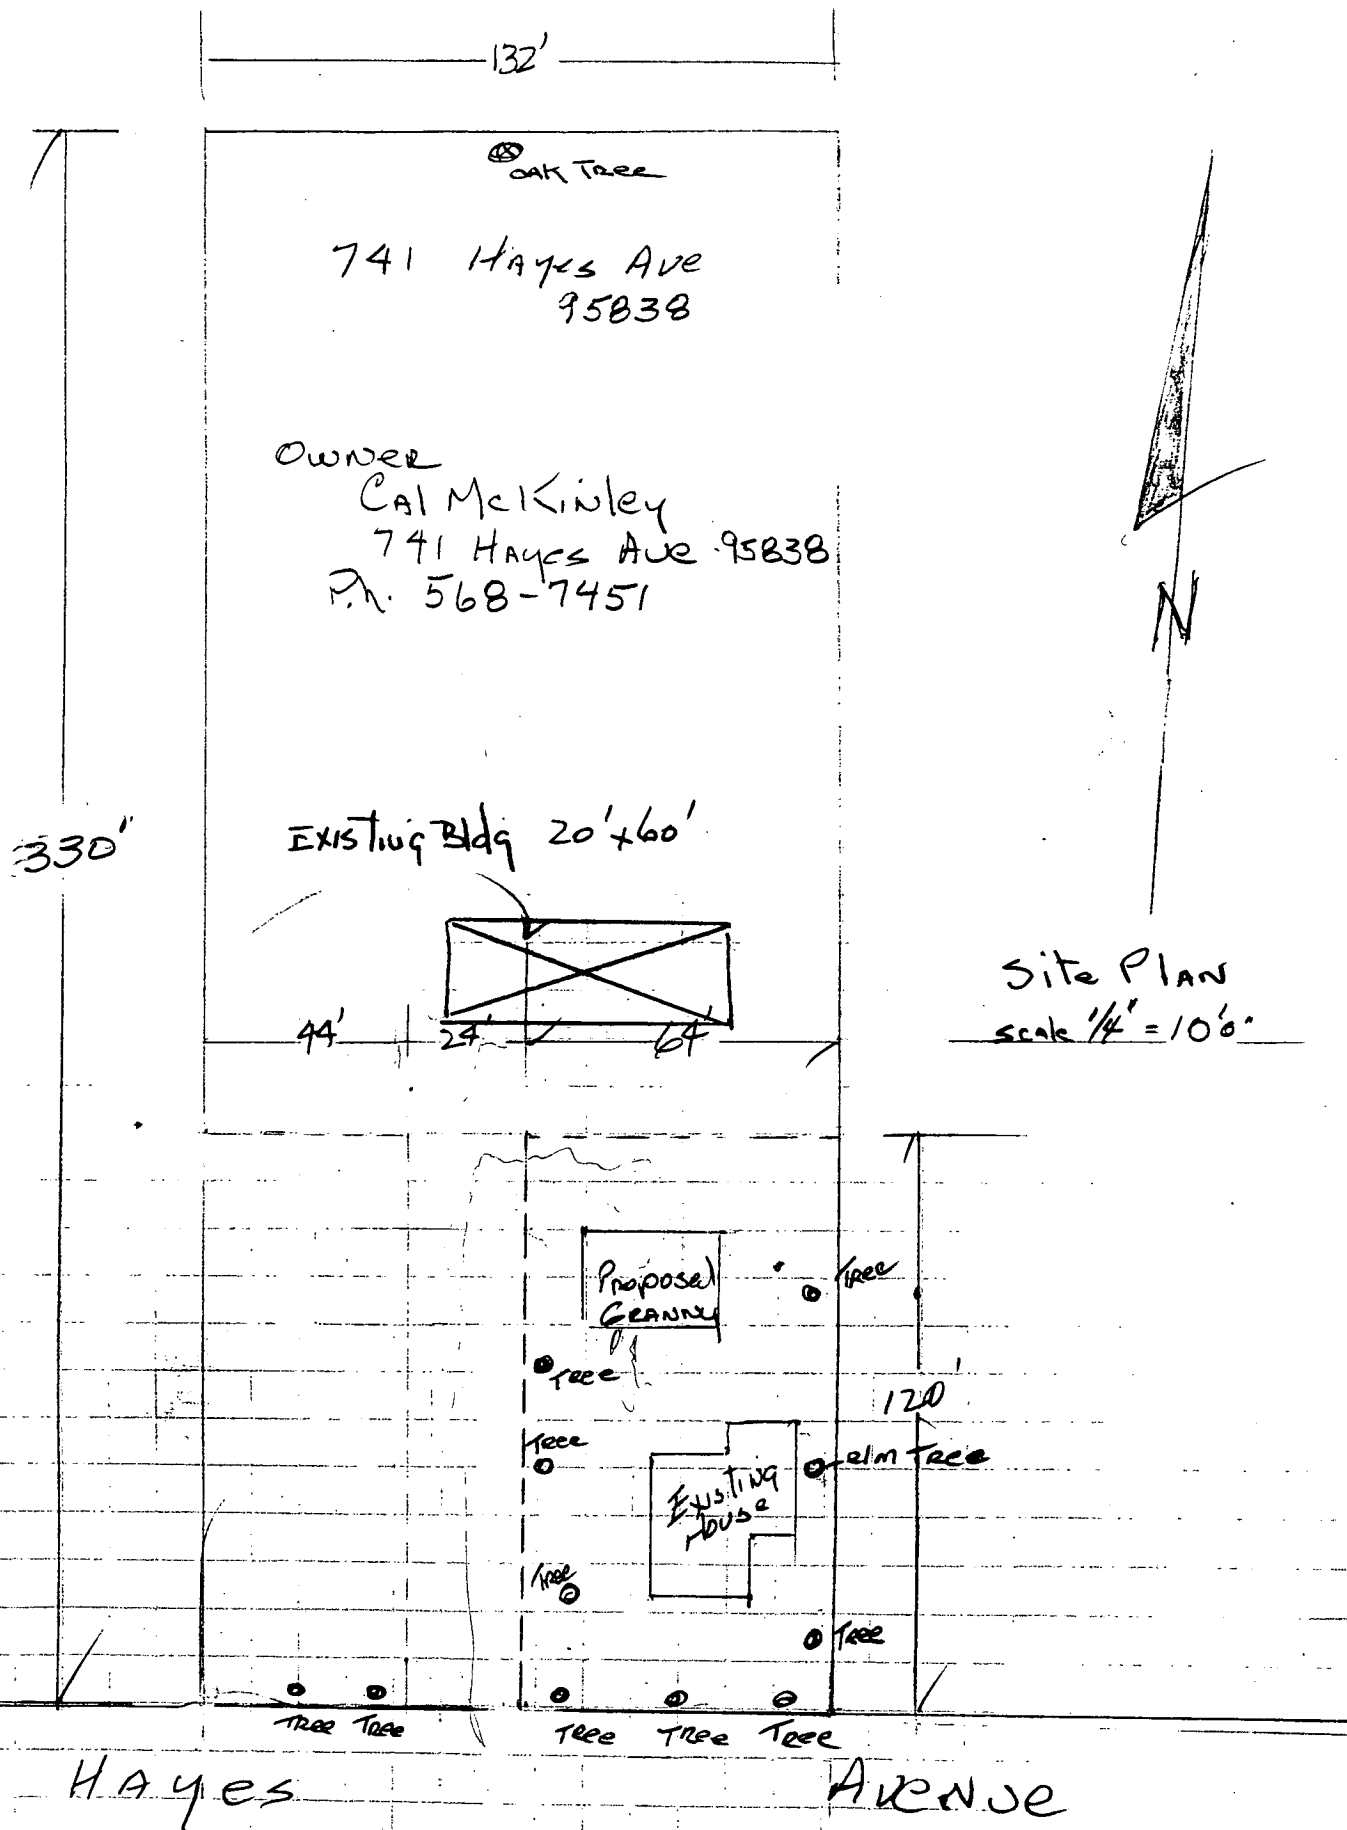 132'
OAK TREE
741 HAYES AVE
95838
OWNER
CAL McKINLEY
741 HAYES AVE 95838
Ph. 568-7451
330'
EXISTING Bldg 20'x60'
44' 24' 64'
Site PLAN
scale 1/4" = 10'0"
Proposed
GRANNY
TREE
TREE
120'
TREE
elm TREE
EXISTING
HOUSE
TREE
TREE
TREE TREE TREE TREE TREE
HAYES AVENUE
N